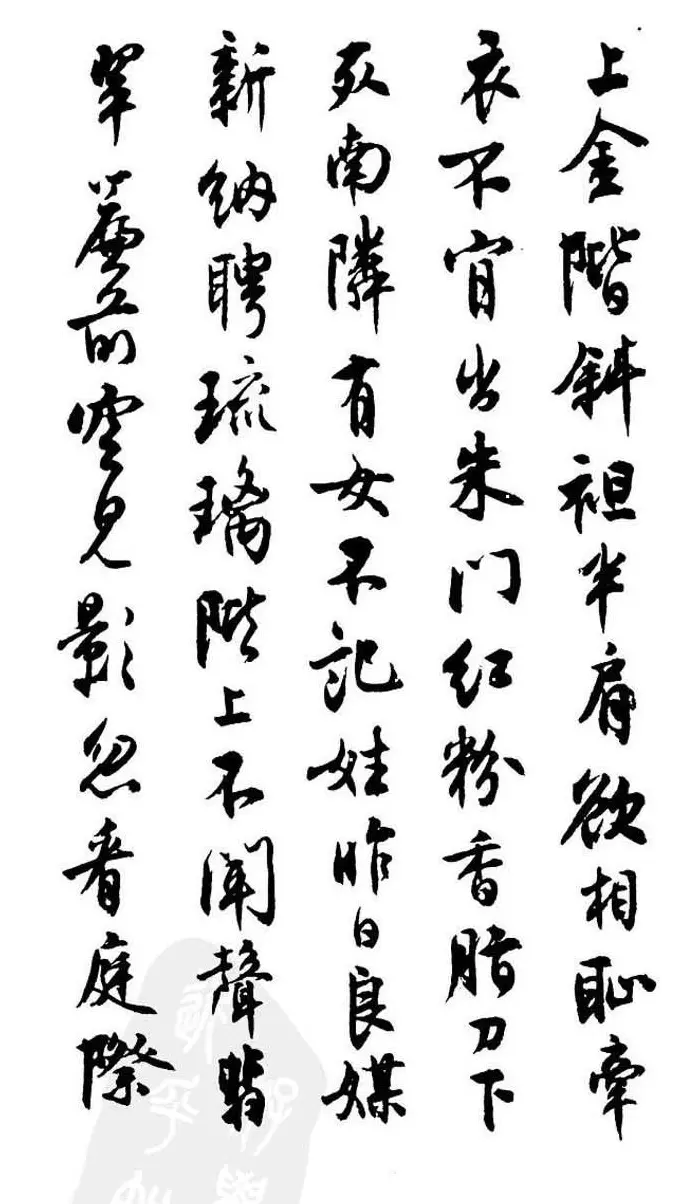 上金階斜袒半肩欲相恥牽
衣不肯出朱門紅粉香脂刀下
死南隣有女不記姓昨日良媒
新納聘琉璃階上不聞聲翡
翠簾前空見影忽看庭際